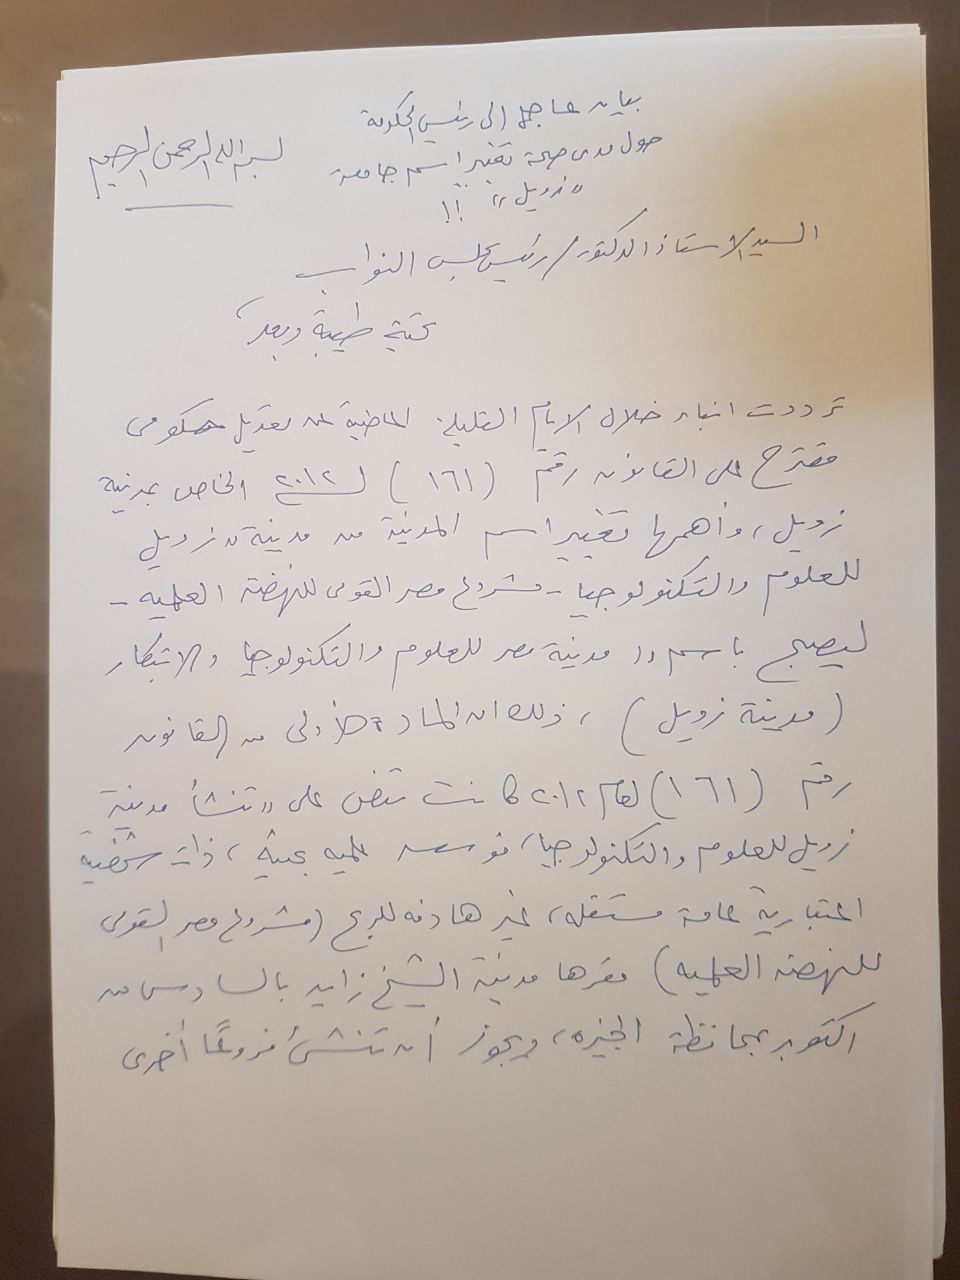 بسم الله الرحمن الرحيم
بيان عاجل إلى رئيس الحكومة
حول مدى صحة تغيير اسم جامعة
"زويل" !!
السيد الاستاذ الدكتور / رئيس مجلس النواب
تحية طيبة وبعد،
ترددت انباء خلال الايام القليلة الماضية عن تعديل حكومى
مقترح على القانون رقم (١٦١) لسنة ٢٠١٢ الخاص بمدينة
زويل، وأهمها تغيير اسم المدينة من مدينة "زويل
للعلوم والتكنولوجيا - مشروع مصر القومى للنهضة العلميه -
ليصبح باسم "مدينة مصر للعلوم والتكنولوجيا والابتكار
(مدينة زويل)، ذلك ان المادة الأولى من القانون
رقم (١٦١) لعام ٢٠١٢ كانت تنص على "تنشأ مدينة
زويل للعلوم والتكنولوجيا، مؤسسه علميه بحثية، ذات شخصية
اعتبارية عامة مستقله، غير هادفه للربح (مشروع مصر القومى
للنهضه العلميه) مقرها مدينة الشيخ زايد بالسادس من
اكتوبر بمحافظة الجيزه، ويجوز أن تنشئ فروعًا أخرى